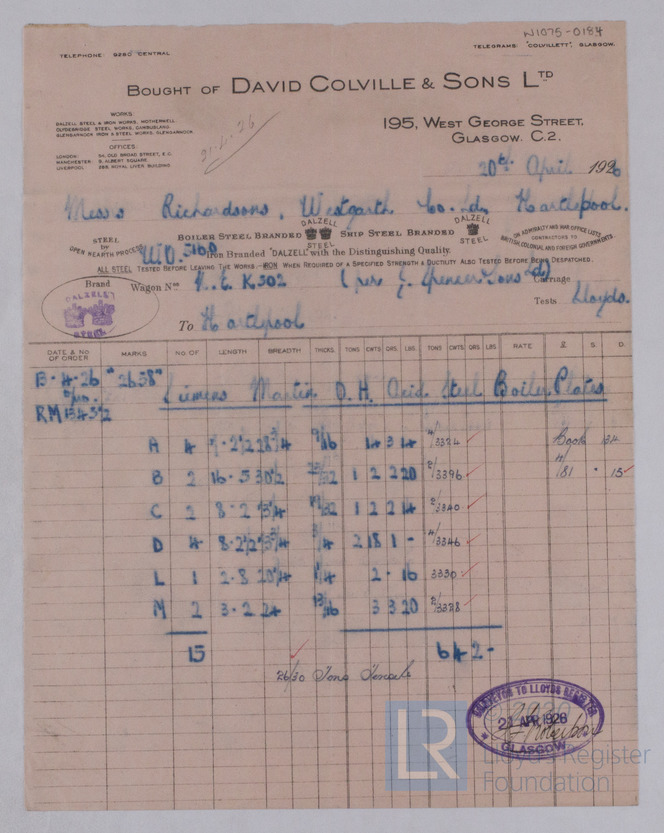 W1075-0184
TELEPHONE: 9260 CENTRAL
TELEGRAMS: "COLVILLETT", GLASGOW.
BOUGHT OF DAVID COLVILLE & SONS LTD
WORKS:
DALZELL STEEL & IRON WORKS, MOTHERWELL
CLYDEBRIDGE STEEL WORKS, CAMBUSLANG.
GLENGARNOCK IRON & STEEL WORKS, GLENGARNOCK
OFFICES:
LONDON: 54, OLD BROAD STREET, E.C.
MANCHESTER: 5, ALBERT SQUARE.
LIVERPOOL 288, ROYAL LIVER BUILDING
195, WEST GEORGE STREET,
GLASGOW. C.2.
20th April 1926
Messrs Richardsons, Westgarth Co. Ld, Hartlepool.
STEEL BY OPEN HEARTH PROCESS
BOILER STEEL BRANDED DALZELL STEEL SHIP STEEL BRANDED DALZELL STEEL
ON ADMIRALTY AND WAR OFFICE LISTS, CONTRACTORS TO BRITISH, COLONIAL AND FOREIGN GOVERNMENTS
WO. 5160 Iron Branded "DALZELL" with the Distinguishing Quality.
ALL STEEL TESTED BEFORE LEAVING THE WORKS.—IRON WHEN REQUIRED OF A SPECIFIED STRENGTH & DUCTILITY ALSO TESTED BEFORE BEING DESPATCHED.
Brand Wagon Nos N.E. K302 (per J. Spencer & Sons Ld) Carriage
DALZELL STEEL
Tests Lloyds.
To Hartlepool
DATE & NO OF ORDER MARKS NO. OF LENGTH BREADTH THICKS. TONS CWTS QRS. LBS. TONS CWTS. QRS LBS RATE £ S. D.
13-4-26 "2658" Siemens Martin O.H. Acid Steel Boiler Plates
RM
A 4 9/16 14 3 14 4/3324 Book 134
B 2 16-5 30 1/2 1 2 2 20 2/3396 181 · 15
C 2 8-2 1 2 2 14 2/3340
D 4 2 18 1 - 4/3346
L 1 2-8 2 - 16 3330
M 2 3-2 24 13/16 3 3 20 2/3328
15 6 4 2 -
26/30 Tons Tensile
SURVEYOR TO LLOYDS REGISTER
APR 1926
GLASGOW
LR Lloyd's Register
Foundation